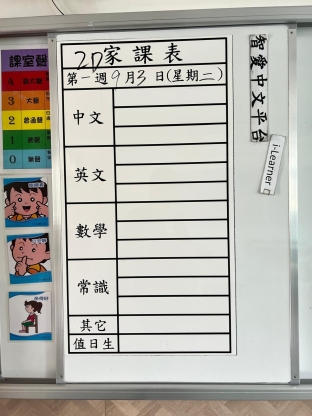 2D家課表
第一週9月3日(星期二)
中文
英文
數學
常識
其它
值日生
智愛中文平台
i-Learner
課室聲
4
3 大聲
2
1
0